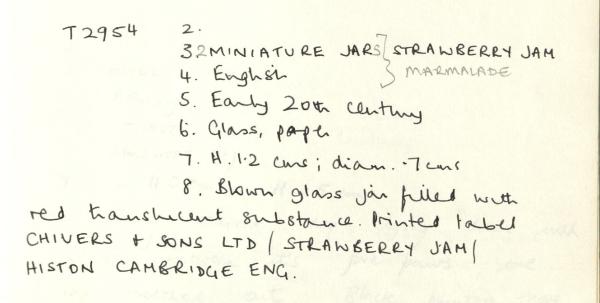 T2954 2.
3 2 MINIATURE JARS STRAWBERRY JAM
4. English MARMALADE
5. Early 20th century
6. Glass, paper
7. H. 1.2 cms; diam. .7 cms
8. Blown glass jar filled with
red translucent substance. Printed label
CHIVERS & SONS LTD / STRAWBERRY JAM /
HISTON CAMBRIDGE ENG.